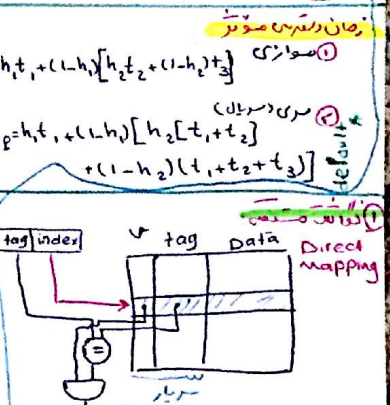 زمان دسترسی مؤثر
① موازی
h₁t₁+(1-h₁)[h₂t₂+(1-h₂)t₃]
② سری (سریال)
default
e=h₁t₁+(1-h₁)[h₂[t₁+t₂]
+(1-h₂)(t₁+t₂+t₃)]
① نگاشت مستقیم
Direct Mapping
tag index
v tag Data
=
سربار